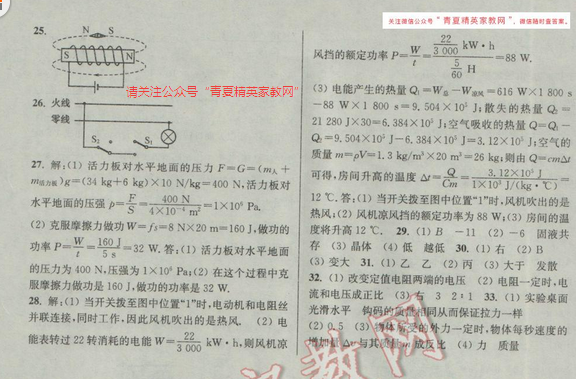 关注微信公众号"青夏精英家教网",微信随时查答案。
25.
N S
S N
请关注公众号"青夏精英家教网"
26. 火线
零线
S₂ S₁
27. 解:(1) 活力板对水平地面的压力 F=G=(m人+
m活力板)g=(34 kg+6 kg)×10 N/kg=400 N,活力板对
水平地面的压强 p=F/S=400 N/4×10⁻⁴ m²=1×10⁶ Pa.
(2) 克服摩擦力做功 W=fs=8 N×20 m=160 J,做功的
功率 P=W/t=160 J/5 s=32 W. 答:(1) 活力板对水平地面
的压力为 400 N,压强为 1×10⁶ Pa;(2) 在这个过程中克
服摩擦力做功是 160 J,做功的功率是 32 W.
28. 解:(1) 当开关拨至图中位置"1"时,电动机和电阻丝
并联连接,同时工作,因此风机吹出的是热风. (2) 电
能表转过 22 转消耗的电能 W=22/3 000 kW·h,则风机凉
风挡的额定功率 P=W/t=22/3 000 kW·h/5/60 H=88 W.
(3) 电能产生的热量 Q₁=W总-W凉风=616 W×1 800 s
-88 W×1 800 s=9.504×10⁵ J;散失的热量 Q₂=
21 280 J×30=6.384×10⁵ J;空气吸收的热量 Q=Q₁-
Q₂=9.504×10⁵ J-6.384×10⁵ J=3.12×10⁵ J;空气的
质量 m=ρV=1.3 kg/m³×20 m³=26 kg;则由 Q=cmΔt
可得,房间升高的温度 Δt=Q/Cm=3.12×10⁵ J/1×10³ J/(kg·℃)=
12 ℃.答:(1) 当开关拨至图中位置"1"时,风机吹出的是
热风;(2) 风机凉风挡的额定功率为 88 W;(3) 房间的温
度将升高 12 ℃. 29. (1) B -11 (2) -6 固液共
存 (3) 晶体 (4) 低 越低 30. (1) 右 (2) B
(3) 变大 31. (1) 乙 乙 (2) 丙 (3) 大于 发散
32. (1) 改变定值电阻两端的电压 (2) 电阻一定时,电
流和电压成正比 (3) 右 3 2:1 33. (1) 实验桌面
光滑水平 钩码的质量相同从而保证拉力一样
(2) 0.5 (3) 物体所受的外力一定时,物体每秒速度的
增加量 Δv 与其质量 m 成反比 (4) 力 质量
教网